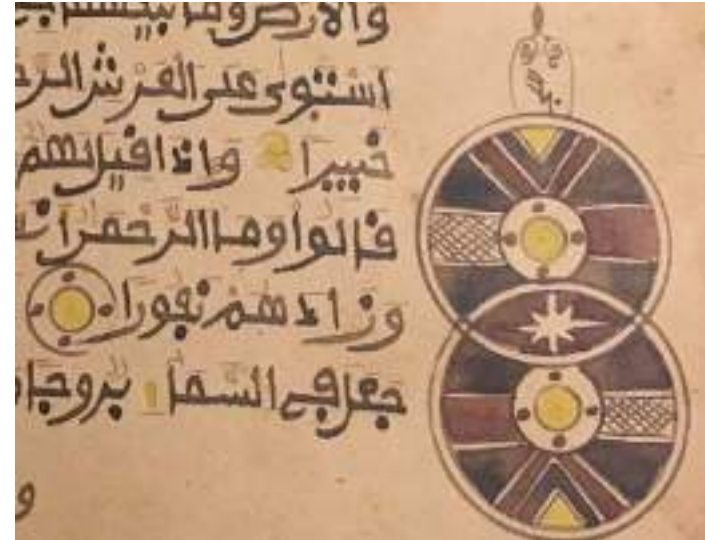 والارض وما بينهما
استوى على العرش الر
خبيرا واذا قيل لهم
قالوا وما الرحمن
وزادهم نفورا
جعل في السماء بروجا
و